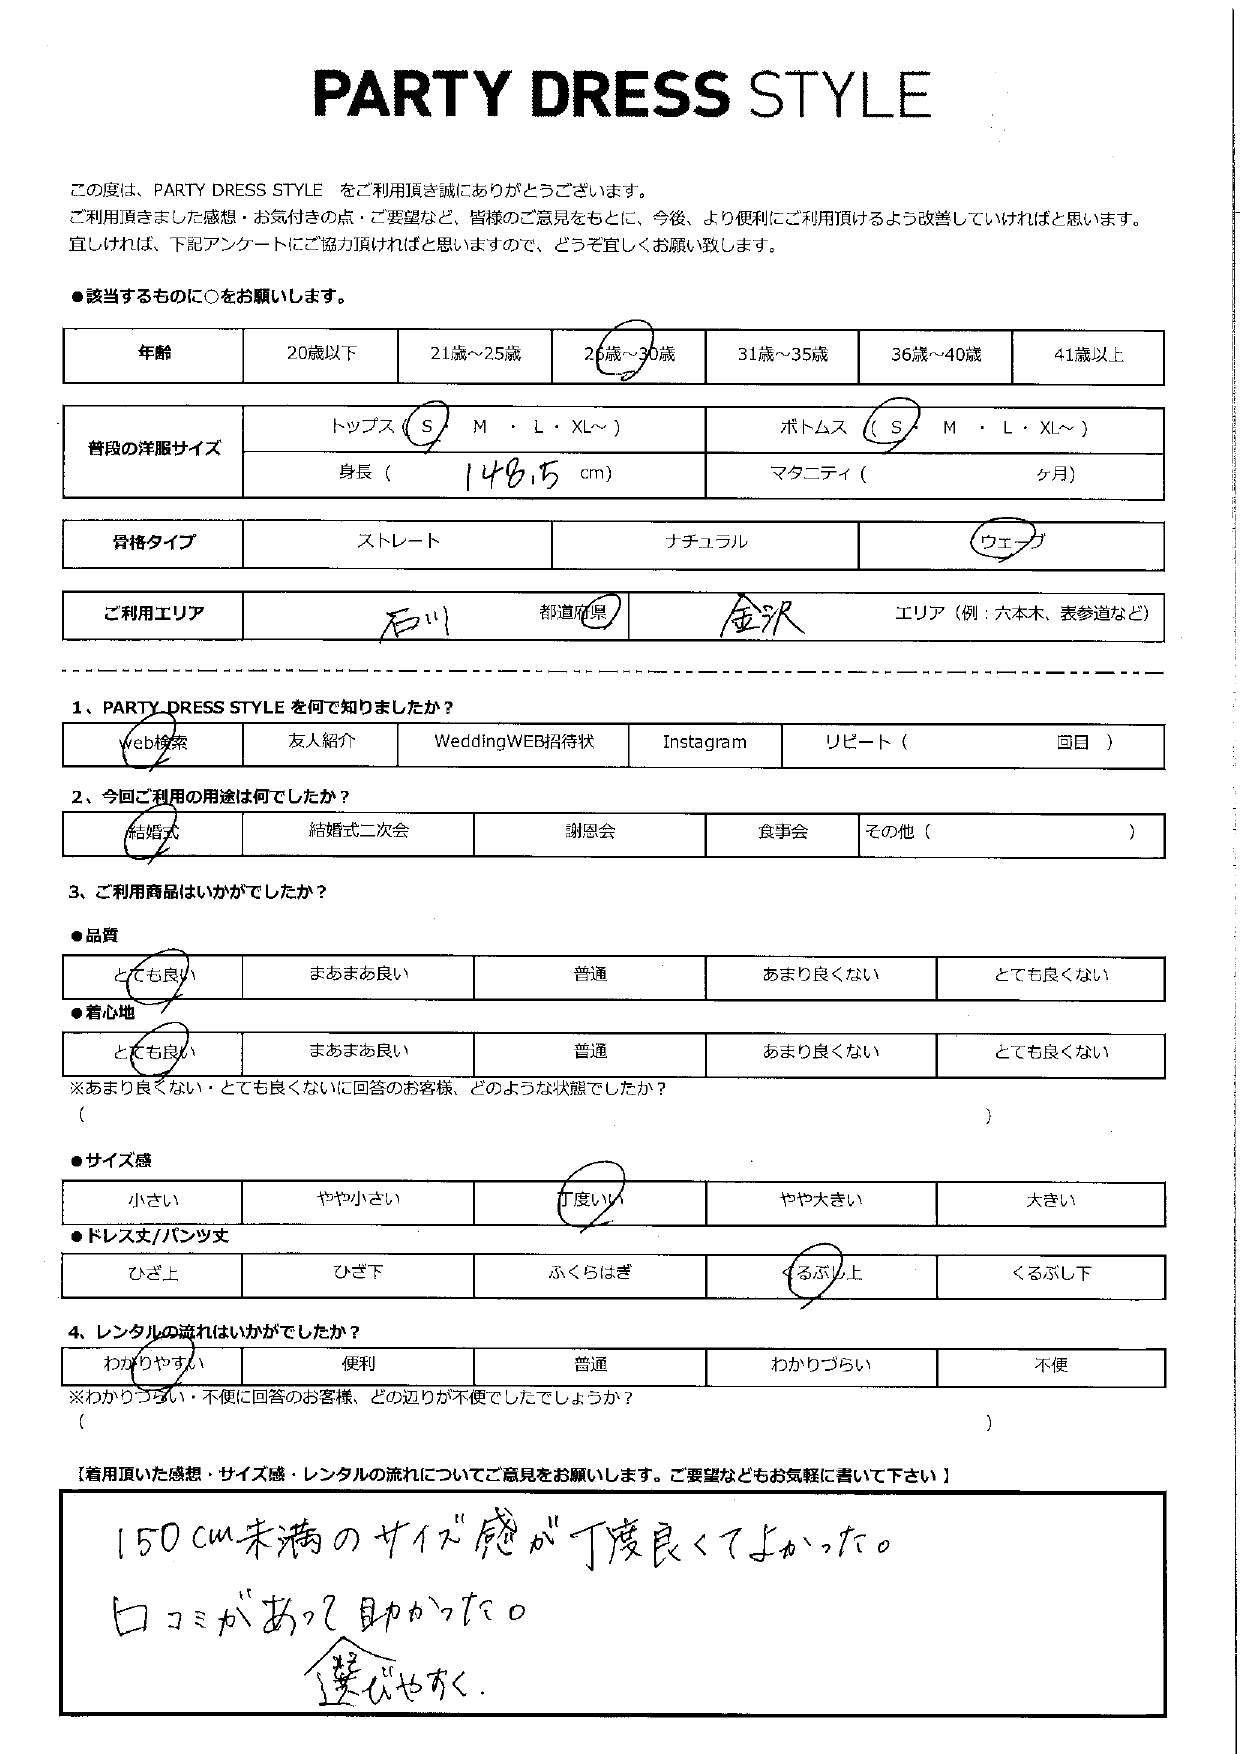 PARTY DRESS STYLE
この度は、PARTY DRESS STYLE をご利用頂き誠にありがとうございます。
ご利用頂きました感想・お気付きの点・ご要望など、皆様のご意見をもとに、今後、より便利にご利用頂けるよう改善していければと思います。
宜しければ、下記アンケートにご協力頂ければと思いますので、どうぞ宜しくお願い致します。
●該当するものに○をお願いします。
年齢 20歳以下 21歳～25歳 26歳～30歳 31歳～35歳 36歳～40歳 41歳以上
普段の洋服サイズ トップス ( S ・ M ・ L ・ XL～ ) ボトムス ( S ・ M ・ L ・ XL～ )
身長 ( 148.5 cm) マタニティ ( ヶ月)
骨格タイプ ストレート ナチュラル ウェーブ
ご利用エリア 石川 都道府県 金沢 エリア（例：六本木、表参道など）
1、PARTY DRESS STYLE を何で知りましたか？
web検索 友人紹介 WeddingWEB招待状 Instagram リピート ( 回目 )
2、今回ご利用の用途は何でしたか？
結婚式 結婚式二次会 謝恩会 食事会 その他 ( )
3、ご利用商品はいかがでしたか？
●品質
とても良い まあまあ良い 普通 あまり良くない とても良くない
●着心地
とても良い まあまあ良い 普通 あまり良くない とても良くない
※あまり良くない・とても良くないに回答のお客様、どのような状態でしたか？
( )
●サイズ感
小さい やや小さい 丁度いい やや大きい 大きい
●ドレス丈/パンツ丈
ひざ上 ひざ下 ふくらはぎ くるぶし上 くるぶし下
4、レンタルの流れはいかがでしたか？
わかりやすい 便利 普通 わかりづらい 不便
※わかりづらい・不便に回答のお客様、どの辺りが不便でしたでしょうか？
( )
【着用頂いた感想・サイズ感・レンタルの流れについてご意見をお願いします。ご要望などもお気軽に書いて下さい】
150cm未満のサイズ感が丁度良くてよかった。
口コミがあって助かった。
選びやすく.